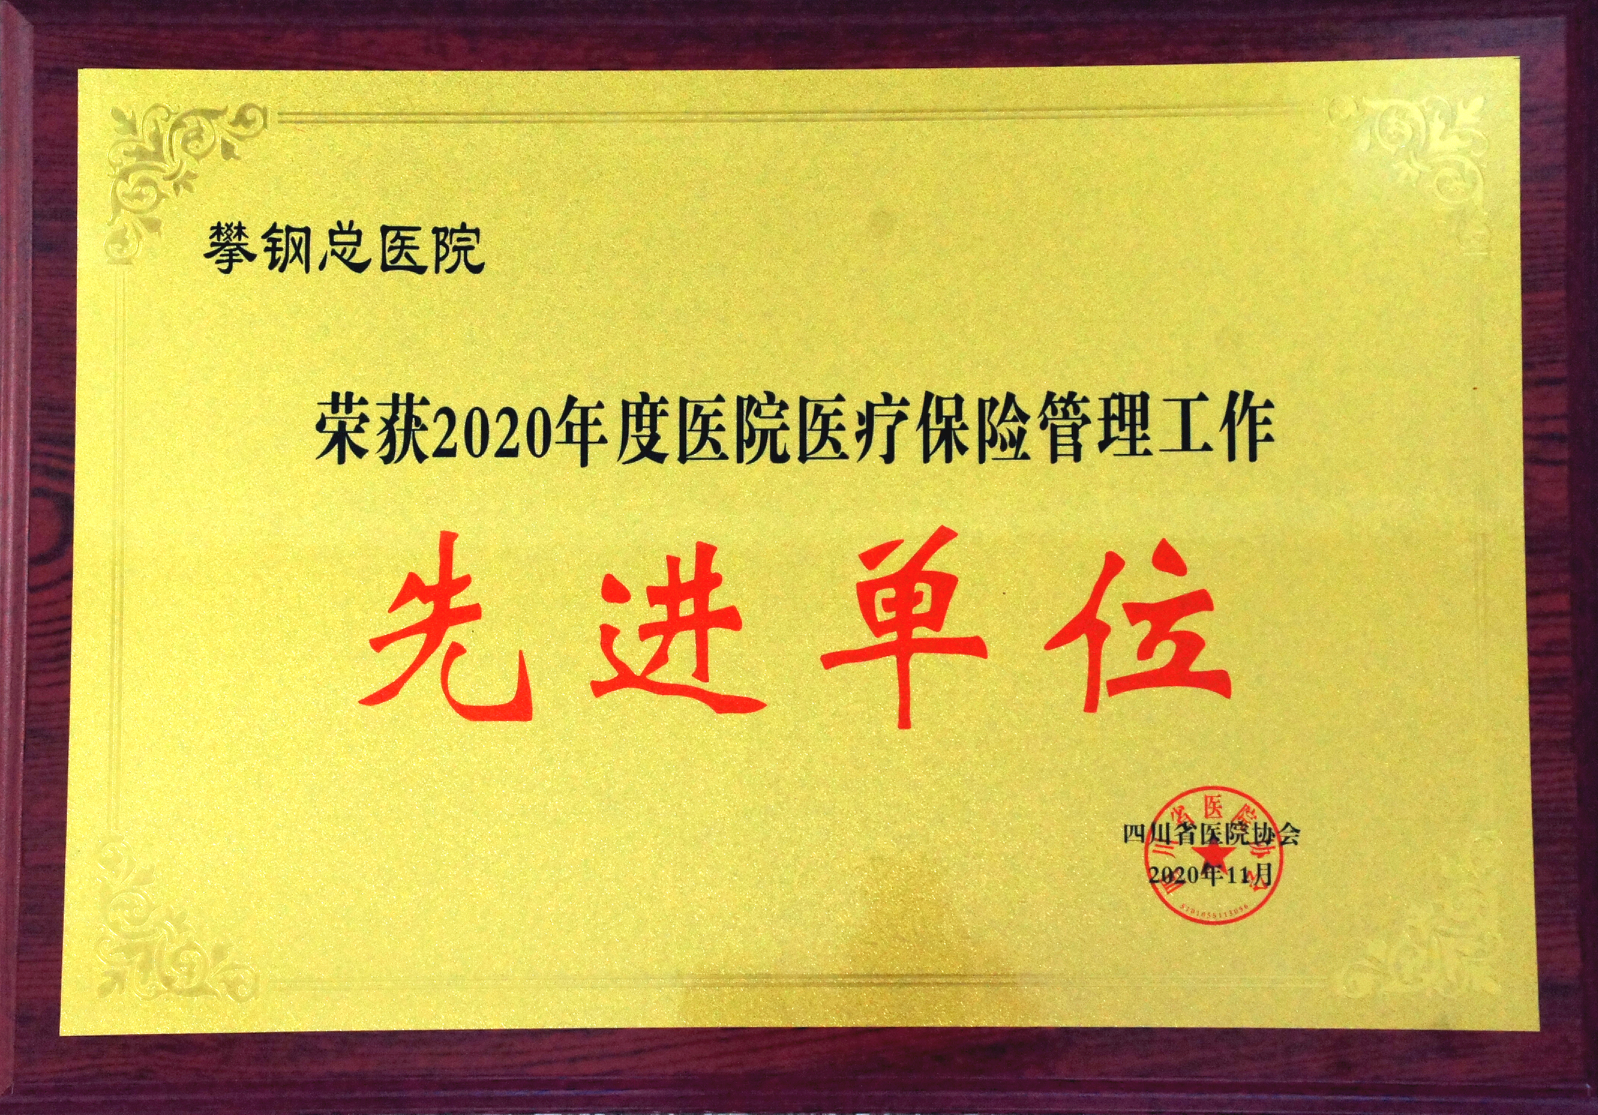 攀钢总医院
荣获2020年度医院医疗保险管理工作
先进单位
四川省医院协会
2020年11月
四川省医院协会